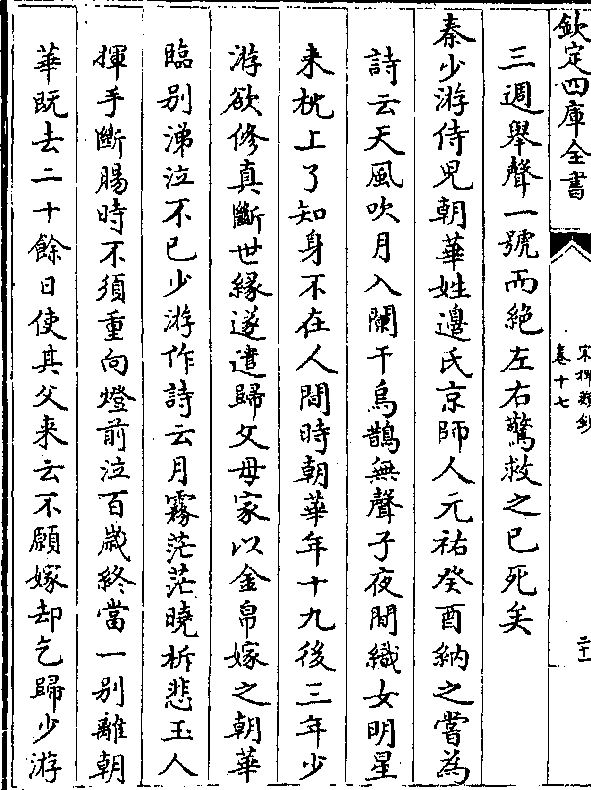 欽定四庫全書
宋稗類鈔
卷十七
二十一
三週舉聲一號而絶左右驚救之已死矣
秦少游侍兒朝華姓邊氏京師人元祐癸酉納之嘗為
詩云天風吹月入闌干烏鵲無聲子夜間織女明星
来枕上了知身不在人間時朝華年十九後三年少
游欲修真斷世縁遂遣歸父母家以金帛嫁之朝華
臨别涕泣不已少游作詩云月霧茫茫曉柝悲玉人
揮手斷腸時不須重向燈前泣百歲終當一别離朝
華既去二十餘日使其父来云不願嫁却乞歸少游